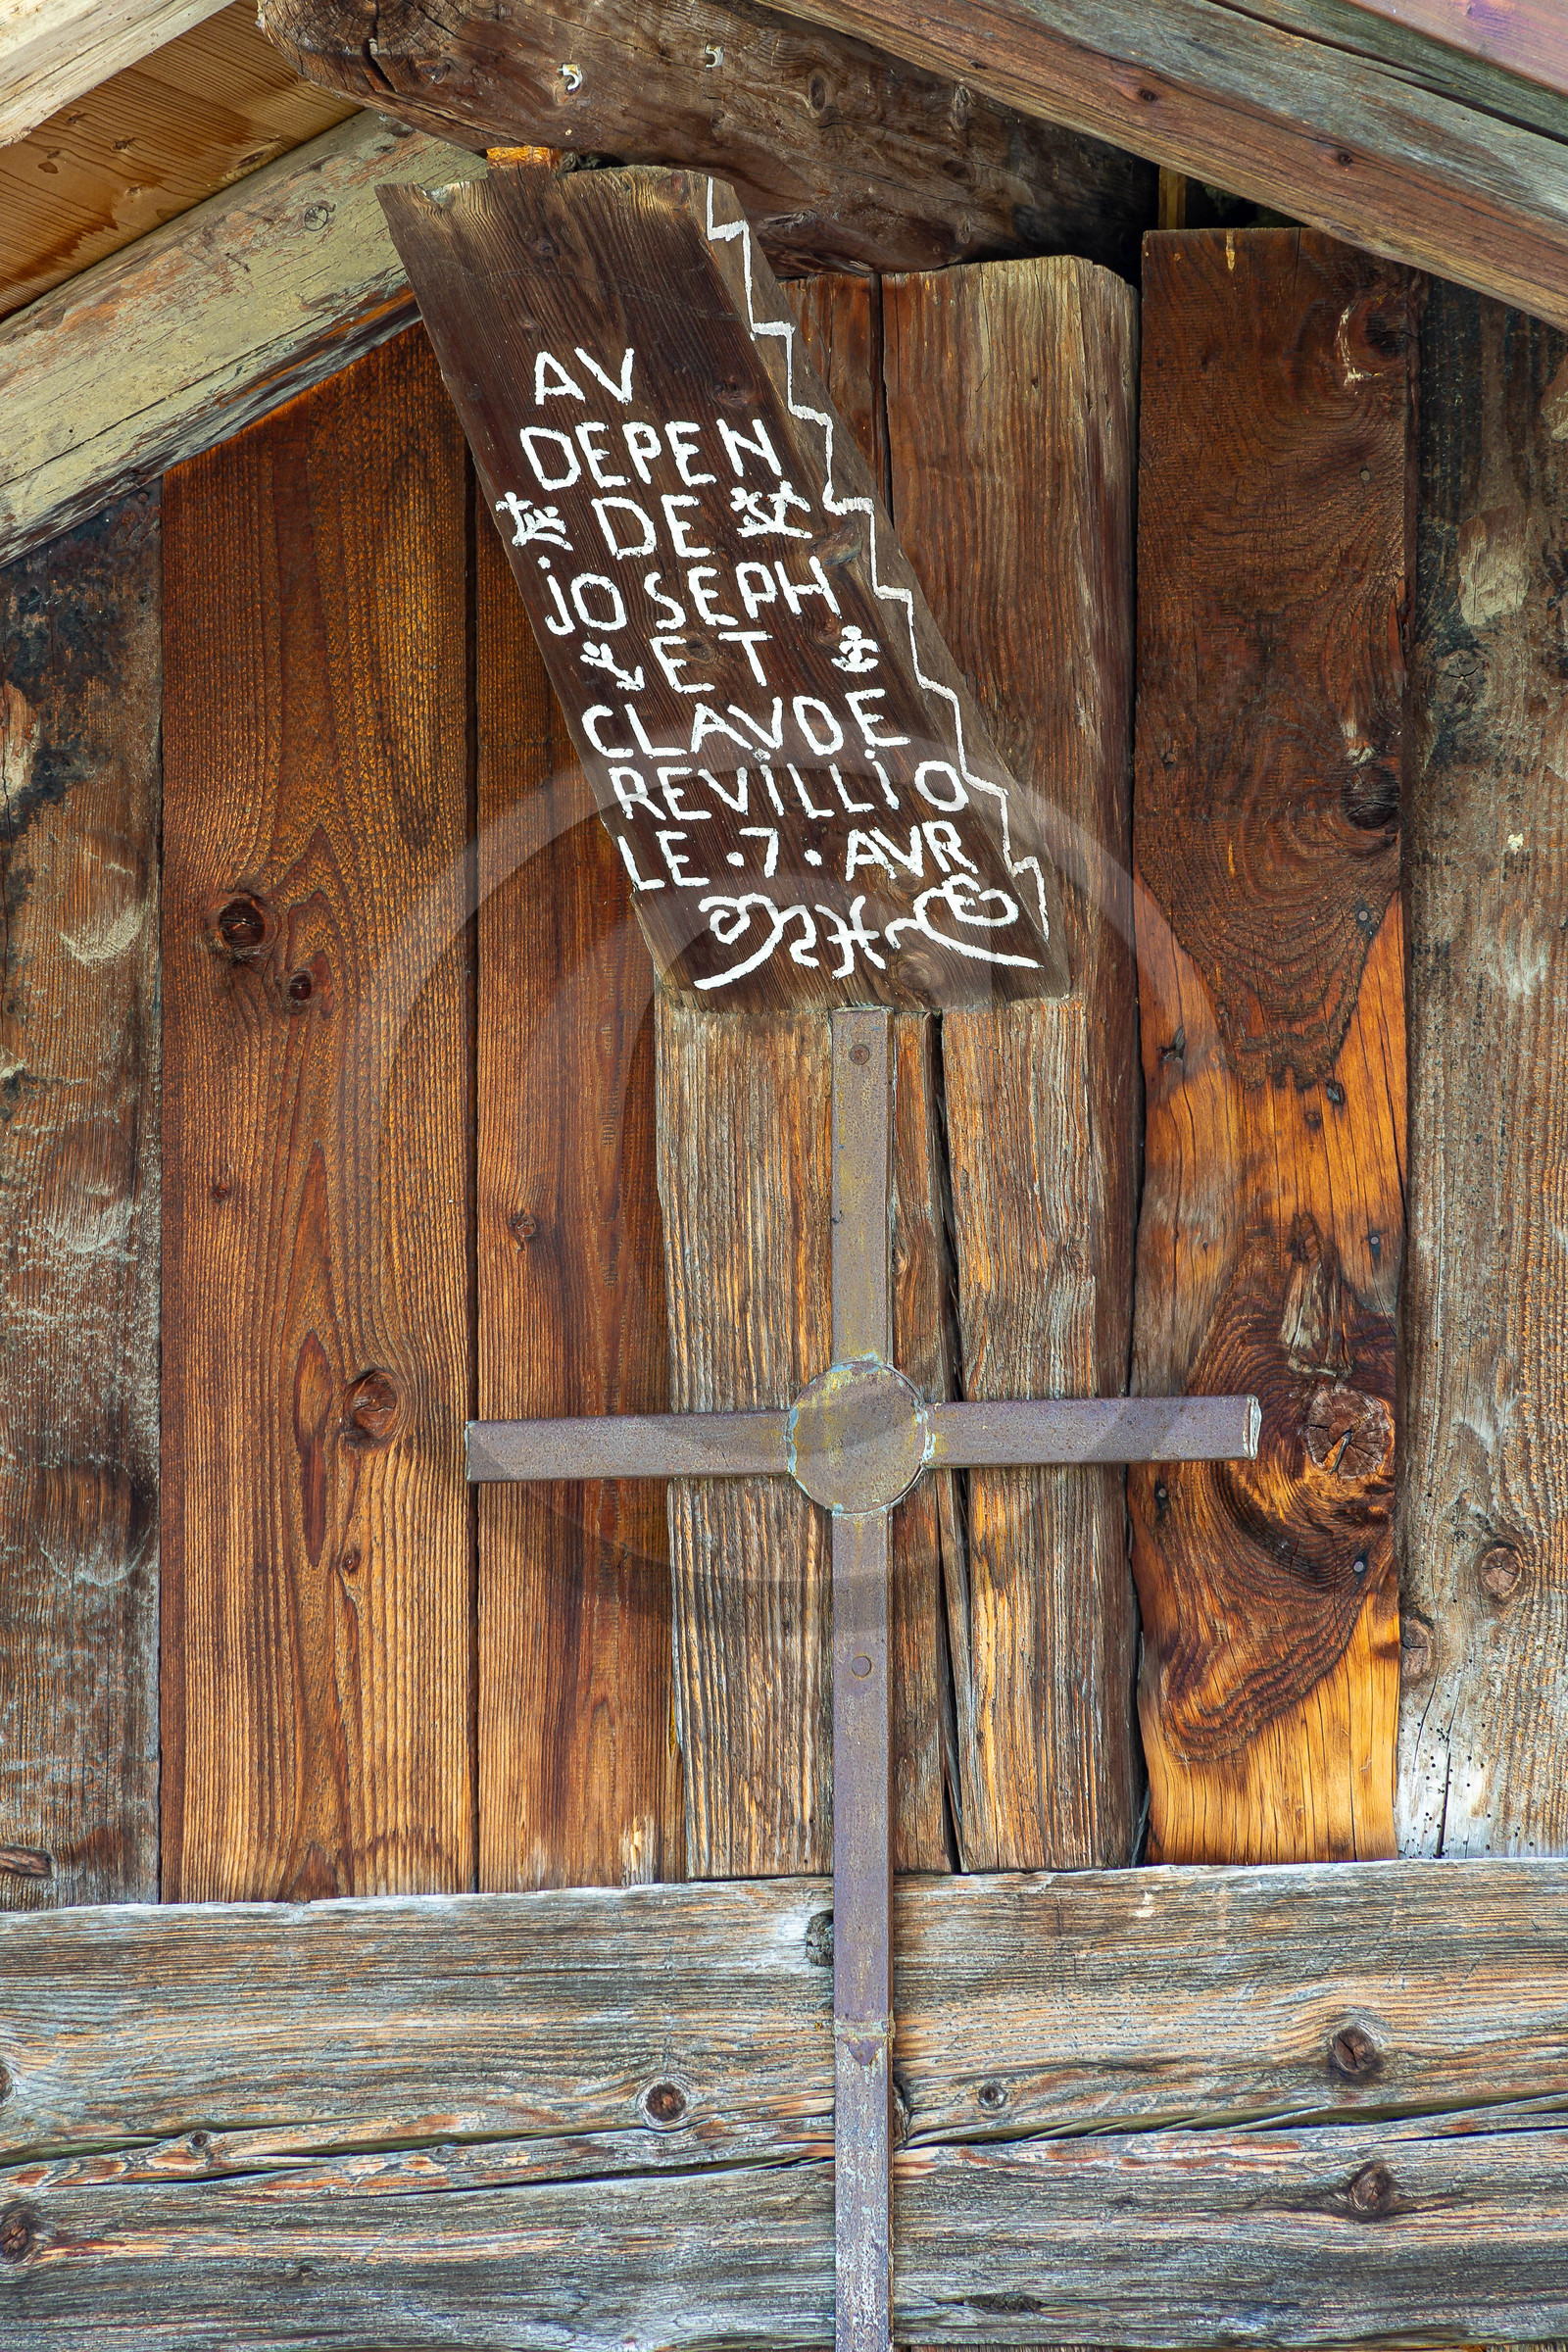 AV
DEPEN
DE
jOSEPH
ET
CLAVDE
REVILLiO
LE·7·AVR